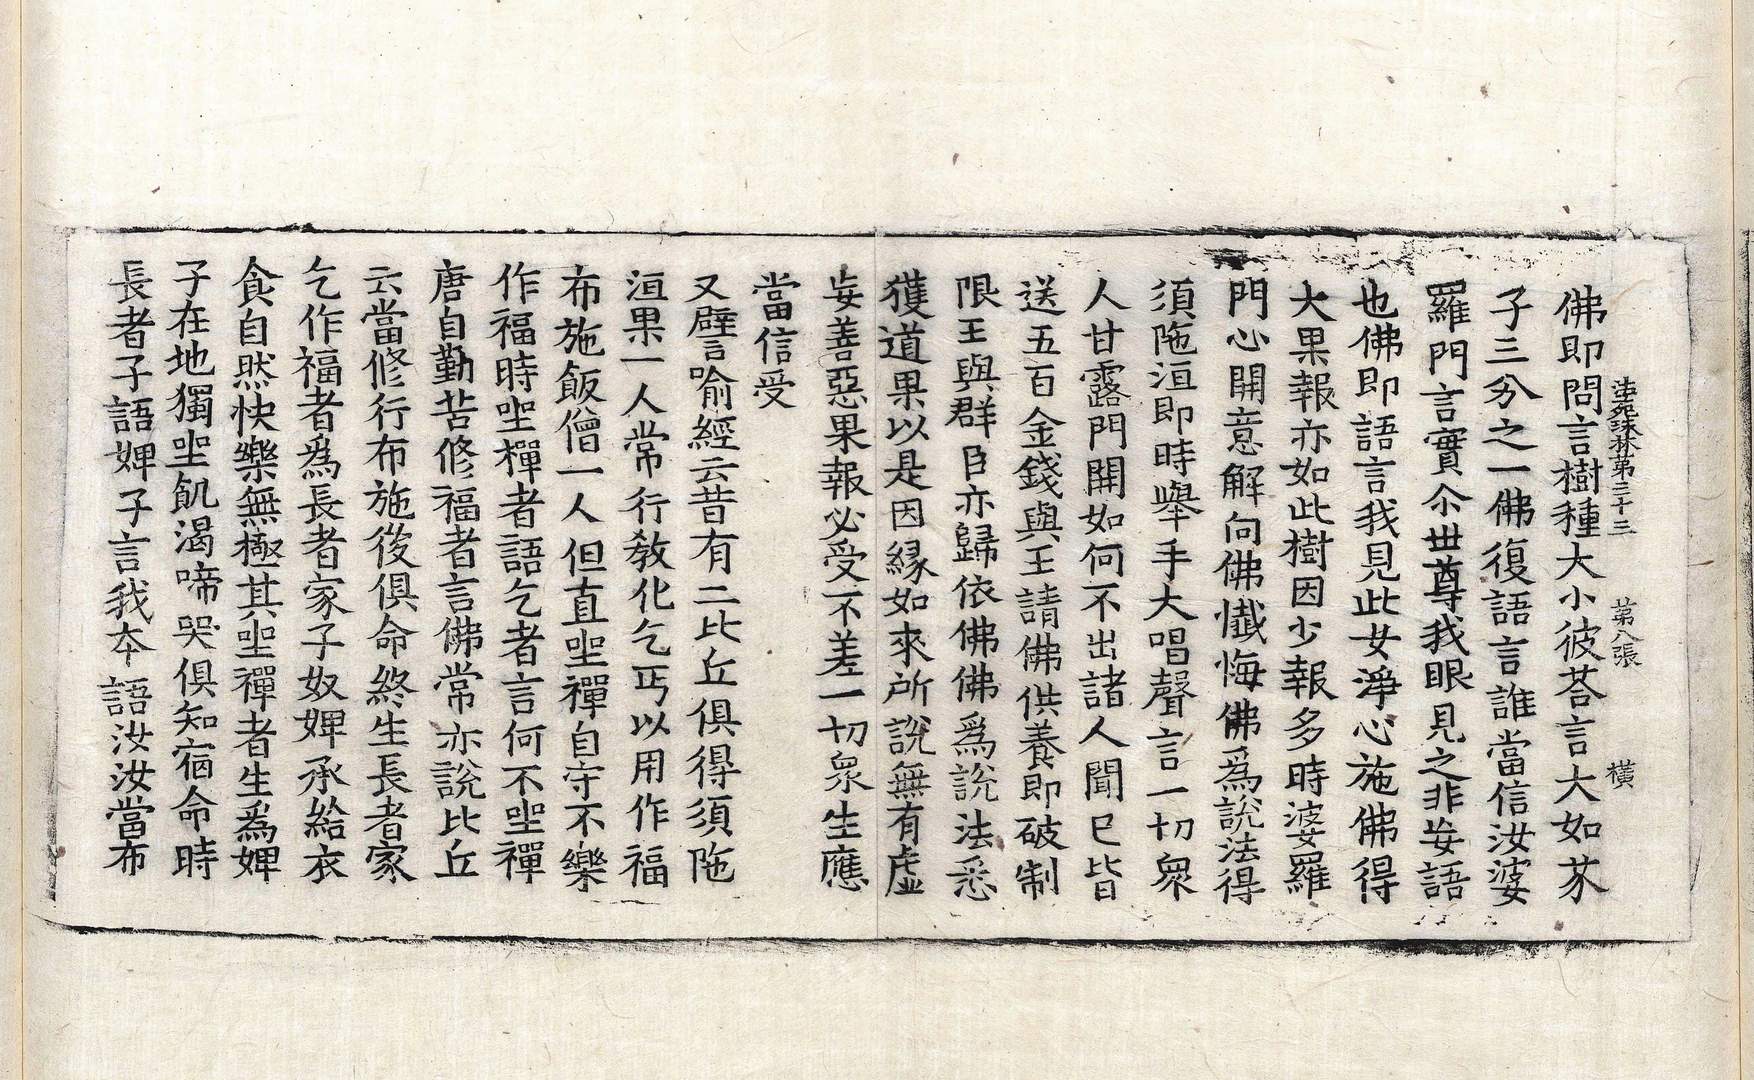 法苑珠林第三十三 第八張 橫
佛即問言樹種大小彼荅言大如芥
子三分之一佛復語言誰當信汝婆
羅門言實尒世尊我眼見之非妄語
也佛即語言我見此女淨心施佛得
大果報亦如此樹因少報多時婆羅
門心開意解向佛懺悔佛爲說法得
須陁洹即時舉手大唱聲言一切衆
人甘露門開如何不出諸人聞已皆
送五百金錢與王請佛供養即破制
限王與群臣亦歸依佛佛爲說法悉
獲道果以是因緣如來所說無有虛
妄善惡果報必受不差一切衆生應
當信受
又譬喻經云昔有二比丘俱得須陁
洹果一人常行教化乞丐以用作福
布施飯僧一人但直坐禪自守不樂
作福時坐禪者語乞者言何不坐禪
唐自勤苦修福者言佛常亦說比丘
云當修行布施後俱命終生長者家
乞作福者爲長者家子奴婢承給衣
食自然快樂無極其坐禪者生爲婢
子在地獨坐飢渴啼哭俱知宿命時
長者子語婢子言我本語汝汝當布